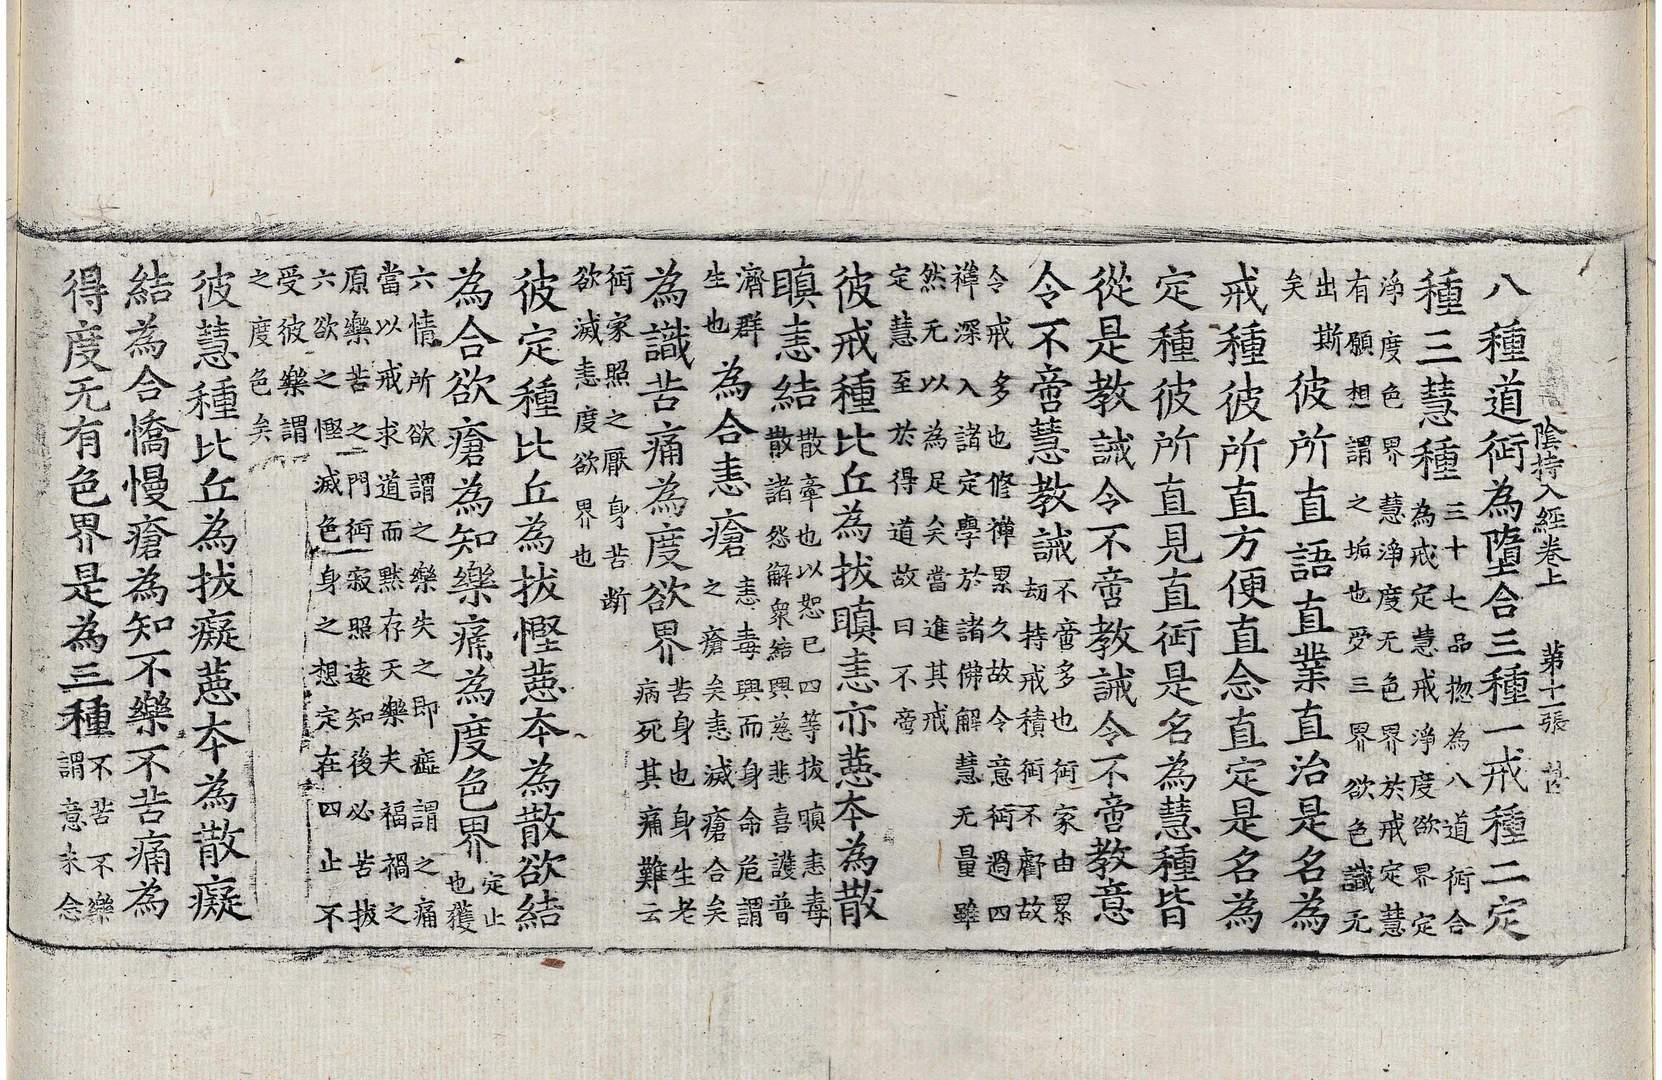 陰持入經卷上 第十二張
八種道術為墮合三種一戒種二定
種三慧種
三十七品揔為八道術合
為戒定慧戒淨度欲界定
淨度色界慧淨度无色界於戒定慧
有願想謂之垢也受三界欲色識无
出斯
矣
彼所直語直業直治是名為
戒種彼所直方便直念直定是名為
定種彼所直見直術是名為慧種皆
從是教誡令不啻教誡令不啻教意
令不啻慧教誡
不啻多也術家由累
劫持戒積術不虧故
令戒多也修禪累久故令意術過四
禪深入諸定學於諸佛解慧无量雖
然无以為足矣當進其戒
定慧至於得道故曰不啻
彼戒種比丘為拔瞋恚亦蔥本為散
瞋恚結
散辜也以恕己四等拔嗔恚毒
散諸怨解衆結興慈悲喜護普
濟群
生也
為合恚瘡
恚毒興而身命危謂
之瘡矣恚滅瘡合矣
為識苦痛為度欲界
苦身也身生老
病死其痛難云
術家照之厭身苦斷
欲滅恚度欲界也
彼定種比丘為拔慳蔥本為散欲結
為合欲瘡為知樂痛為度色界
定止
也獲
六情所欲謂之樂失之即謂之痛
當以戒求道而黙存天樂夫福禍之
原樂苦之門術寂照遠知後必苦拔
六欲之慳滅色身之想定在四止不
受彼樂謂
之度色矣
彼慧種比丘為拔癡蔥本為散癡
結為合憍慢瘡為知不樂不苦痛為
得度无有色界是為三種
不苦不樂
謂意未念